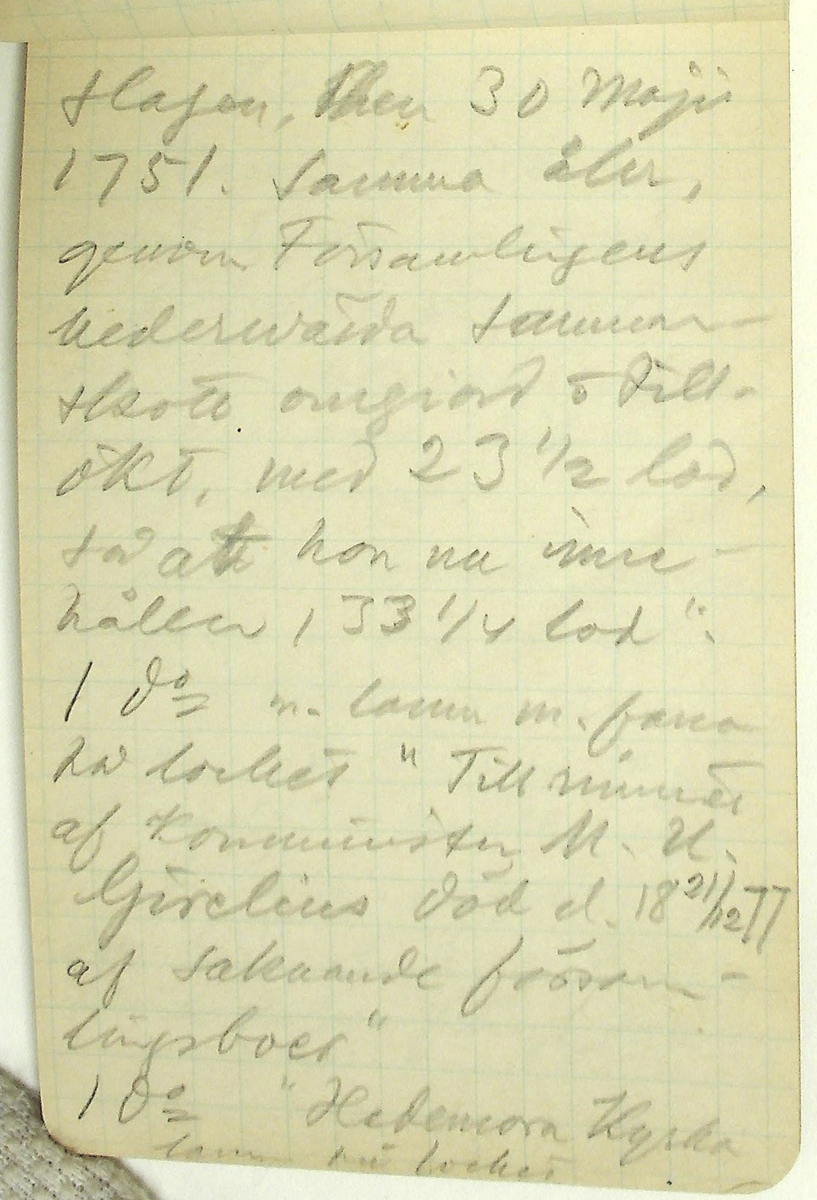 slagen, then 30 Maji
1751. Samma åhr,
genom Församlingens
hederwärda samman-
skott omgiord ō till-
ökt, med 23 1/2 lod,
så att hon nu inne-
håller 133 1/4 lod".
1 do m. lamm m. fana
på locket "Till minnet
af Komminister M. U.
Girelius död d. 18 21/12 77
af saknande försam-
lingsboer"
1 do "Hedemora Kyrka
lamm på locket